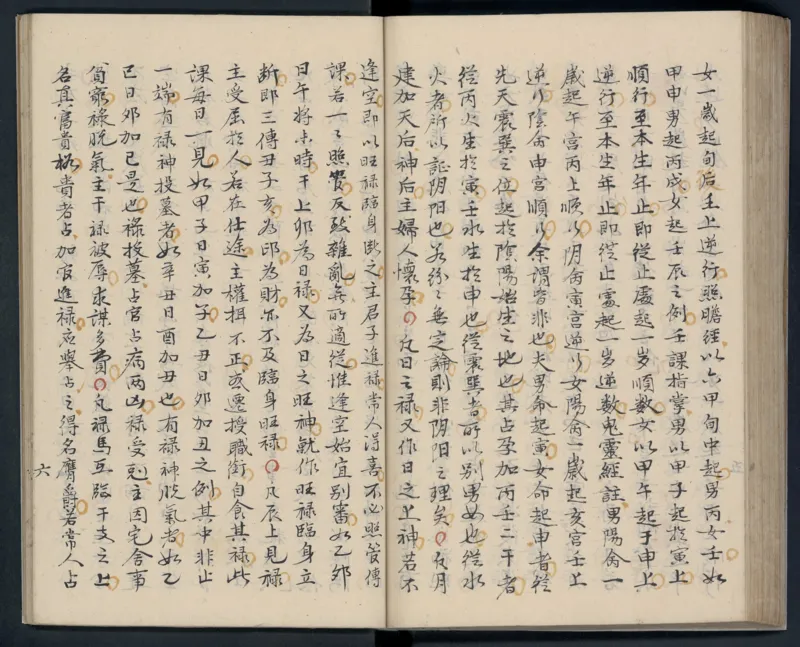 女一歲起旬后壬上逆行照膽經以六甲旬中起男丙女壬如
甲申男起丙戌女起壬辰之例壬課指掌男以甲子起於寅上
順行至本生年止即從止處起一岁順數女以甲午起于申上
逆行至本生年止即從止處起一岁逆數鬼靈經註男陽禽一
歲起午宮丙上順行阴禽寅宮逆行女陽禽一歲起亥宮壬上
逆行陰禽申宮順行余謂皆非也夫男命起寅女命起申者
先天震巽之位起於陰陽始生之地也其占孕加丙壬二干者
從丙火生於寅壬水生於申也從震巽者所以別男女也從水
火者所以証阴阳也若紛紛無定論則非阴阳之理矣○凡月
建加天后神后主婦人懷孕○凡日之禄又作日之上神若不
逢空即以旺禄臨身斷之主君子進禄常人得喜不必照管傳
課若一一照管反致雜亂無所適從惟逢空始宜别審如乙卯
日午將未時干上卯為日禄又為日之旺神就作旺禄臨身立
断即三傳丑子亥為邱為財尔不及臨身旺禄○凡辰上見禄
主受屈於人若在仕途主權摂不正或遷授職銜自食其禄此
課每日一見如甲子日寅加子乙丑日卯加丑之例其中非止
一端有禄神投墓者如辛丑日酉加丑也有禄神脫氣者如乙
巳日卯加巳是也禄投墓占官占病兩凶禄受剋主因宅舍事
貧窮禄脫氣主干禄被辱求謀多費○凡禄馬互臨干支之上
名真富貴格貴者占加官進禄名舉占之得名膺爵若常人占
六